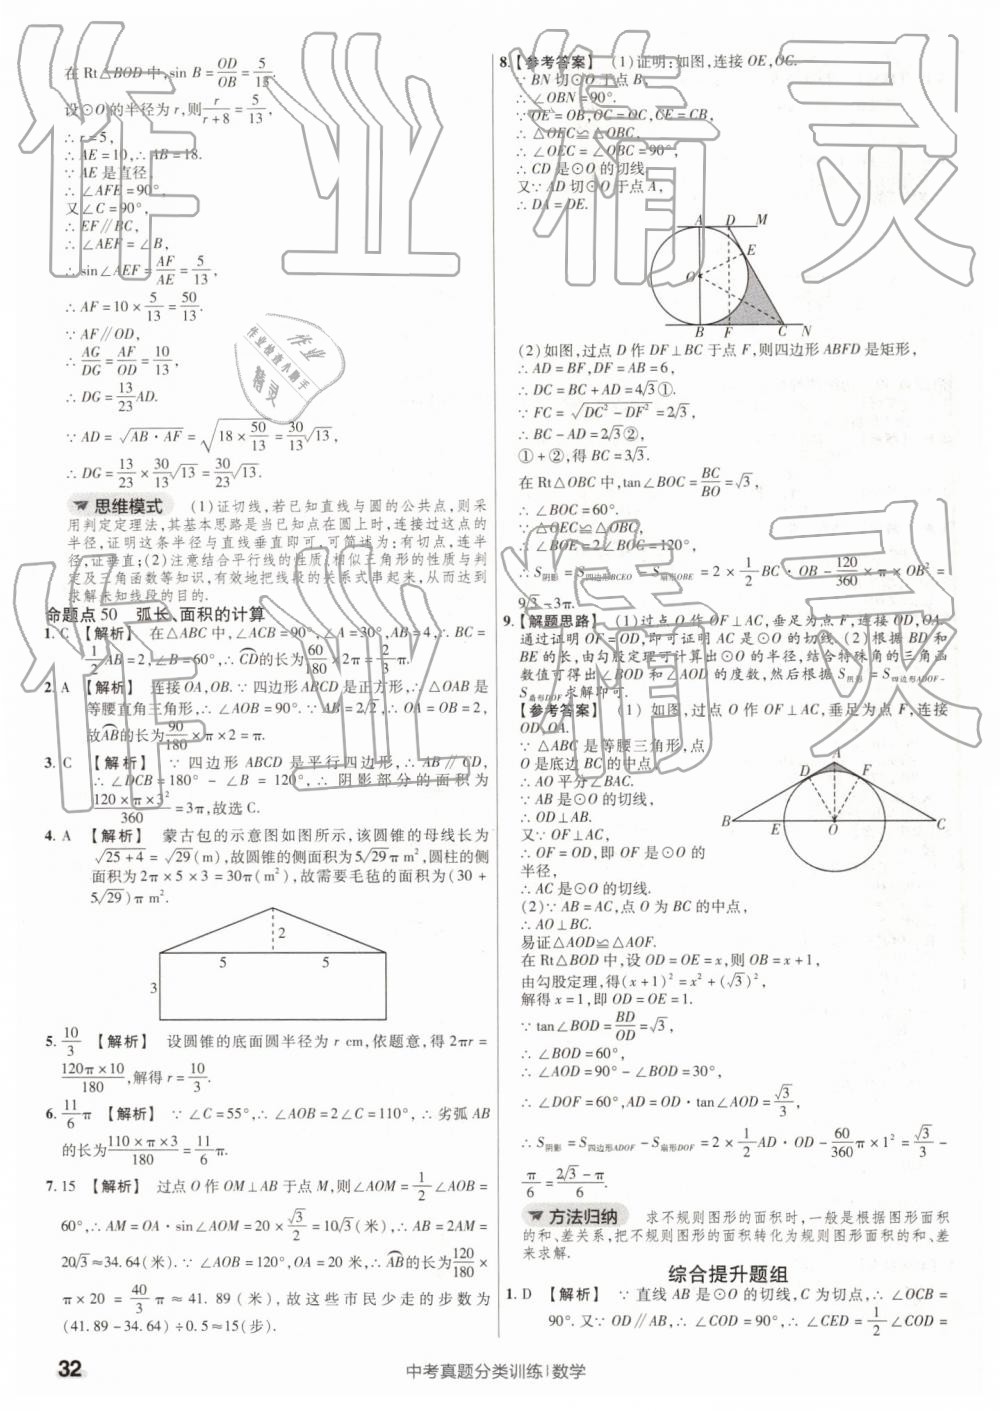 在 Rt△BOD 中, sin B = OD/OB = 5/13.
设⊙O 的半径为 r, 则 r/(r+8) = 5/13,
∴ r = 5,
∴ AE = 10, ∴ AB = 18.
∵ AE 是直径,
∴ ∠AFE = 90°,
又∠C = 90°,
∴ EF∥BC,
∴ ∠AEF = ∠B,
∴ sin∠AEF = AF/AE = 5/13,
∴ AF = 10 × 5/13 = 50/13.
∵ AF∥OD,
∴ AG/DG = AF/OD = 10/13,
∴ DG = 13/23 AD.
∵ AD = √(AB·AF) = √(18 × 50/13) = 30/13 √13,
∴ DG = 13/23 × 30/13 √13 = 30/23 √13.
思维模式 (1)证切线,若已知直线与圆的公共点,则采
用判定定理法,其基本思路是当已知点在圆上时,连接过这点的
半径,证明这条半径与直线垂直即可,可简述为:有切点,连半
径,证垂直;(2)注意结合平行线的性质、相似三角形的性质与判
定及三角函数等知识,有效地把线段的关系式串起来,从而达到
求解未知线段的目的.
命题点 50 弧长、面积的计算
1. C 【解析】 在△ABC 中, ∠ACB = 90°, ∠A = 30°, AB = 4, ∴ BC =
1/2 AB = 2, ∠B = 60°, ∴ CD的长为 60/180 × 2π = 2/3 π.
2. A 【解析】 连接 OA, OB. ∵ 四边形 ABCD 是正方形, ∴ △OAB 是
等腰直角三角形, ∴ ∠AOB = 90°. ∵ AB = 2√2, ∴ OA = OB = 2,
故AB的长为 90/180 × π × 2 = π.
3. C 【解析】 ∵ 四边形 ABCD 是平行四边形, ∴ AB∥CD,
∴ ∠DCB = 180° − ∠B = 120°, ∴ 阴影部分的面积为
(120×π×3²)/360 = 3π, 故选 C.
4. A 【解析】 蒙古包的示意图如图所示,该圆锥的母线长为
√(25+4) = √29 (m), 故圆锥的侧面积为 5√29 π m², 圆柱的侧
面积为 2π × 5 × 3 = 30π (m²), 故需要毛毡的面积为(30 +
5√29) π m².
2
5 5
3
5. 10/3 【解析】 设圆锥的底面圆半径为 r cm, 依题意, 得 2πr =
(120π×10)/180, 解得 r = 10/3.
6. 11/6 π 【解析】 ∵ ∠C = 55°, ∴ ∠AOB = 2∠C = 110°, ∴ 劣弧 AB
的长为 (110×π×3)/180 = 11/6 π.
7. 15 【解析】 过点 O 作 OM⊥AB 于点 M, 则∠AOM = 1/2 ∠AOB =
60°, ∴ AM = OA·sin∠AOM = 20 × √3/2 = 10√3 (米), ∴ AB = 2AM =
20√3 ≈ 34.64 (米). ∵ ∠AOB = 120°, OA = 20 米, ∴ AB的长为 120/180 ×
π × 20 = 40/3 π ≈ 41.89 (米), 故这些市民少走的步数为
(41.89 − 34.64) ÷ 0.5 ≈ 15 (步).
8. 【参考答案】 (1)证明:如图,连接 OE, OC.
∵ BN 切⊙O 于点 B,
∴ ∠OBN = 90°.
∵ OE = OB, OC = OC, CE = CB,
∴ △OEC≌△OBC,
∴ ∠OEC = ∠OBC = 90°,
∴ CD 是⊙O 的切线.
又∵ AD 切⊙O 于点 A,
∴ DA = DE.
A D M
E
O
B F C N
(2)如图,过点 D 作 DF⊥BC 于点 F,则四边形 ABFD 是矩形,
∴ AD = BF, DF = AB = 6,
∴ DC = BC + AD = 4√3 ①.
∵ FC = √(DC² − DF²) = 2√3,
∴ BC − AD = 2√3 ②,
① + ②, 得 BC = 3√3.
在 Rt△OBC 中, tan∠BOC = BC/BO = √3,
∴ ∠BOC = 60°.
∵ △OEC≌△OBC,
∴ ∠BOE = 2∠BOC = 120°,
∴ S阴影 = S四边形BCEO − S扇形OBE = 2 × 1/2 BC·OB − 120/360 × π × OB² =
9√3 − 3π.
9. 【解题思路】 (1)过点 O 作 OF⊥AC,垂足为点 F,连接 OD, OA,
通过证明 OF = OD,即可证明 AC 是⊙O 的切线.(2)根据 BD 和
BE 的长,由勾股定理可计算出⊙O 的半径,结合特殊角的三角函
数值可得出∠BOD 和∠AOD 的度数,然后根据 S阴影 = S四边形ADOF −
S扇形DOF求解即可.
【参考答案】 (1) 如图,过点 O 作 OF⊥AC,垂足为点 F,连接
OD, OA.
∵ △ABC 是等腰三角形,点
O 是底边 BC 的中点,
∴ AO 平分∠BAC.
∵ AB 是⊙O 的切线,
∴ OD⊥AB.
又∵ OF⊥AC,
∴ OF = OD,即 OF 是⊙O 的
半径,
∴ AC 是⊙O 的切线.
A
D F
B E O C
(2)∵ AB = AC,点 O 为 BC 的中点,
∴ AO⊥BC.
易证△AOD≌△AOF.
在 Rt△BOD 中,设 OD = OE = x,则 OB = x + 1,
由勾股定理,得(x + 1)² = x² + (√3)²,
解得 x = 1,即 OD = OE = 1.
∵ tan∠BOD = BD/OD = √3,
∴ ∠BOD = 60°,
∴ ∠AOD = 90° − ∠BOD = 30°,
∴ ∠DOF = 60°, AD = OD·tan∠AOD = √3/3,
∴ S阴影 = S四边形ADOF − S扇形DOF = 2 × 1/2 AD·OD − 60/360 π × 1² = √3/3 −
π/6 = (2√3 − π)/6.
方法归纳 求不规则图形的面积时,一般是根据图形面积
的和、差关系,把不规则图形的面积转化为规则图形面积的和、差
来求解.
综合提升题组
1. D 【解析】 ∵ 直线 AB 是⊙O 的切线, C 为切点, ∴ ∠OCB =
90°. 又∵ OD∥AB, ∴ ∠COD = 90°, ∴ ∠CED = 1/2 ∠COD =
32
中考真题分类训练|数学
作业精灵
作业
作业检查小助手
精灵